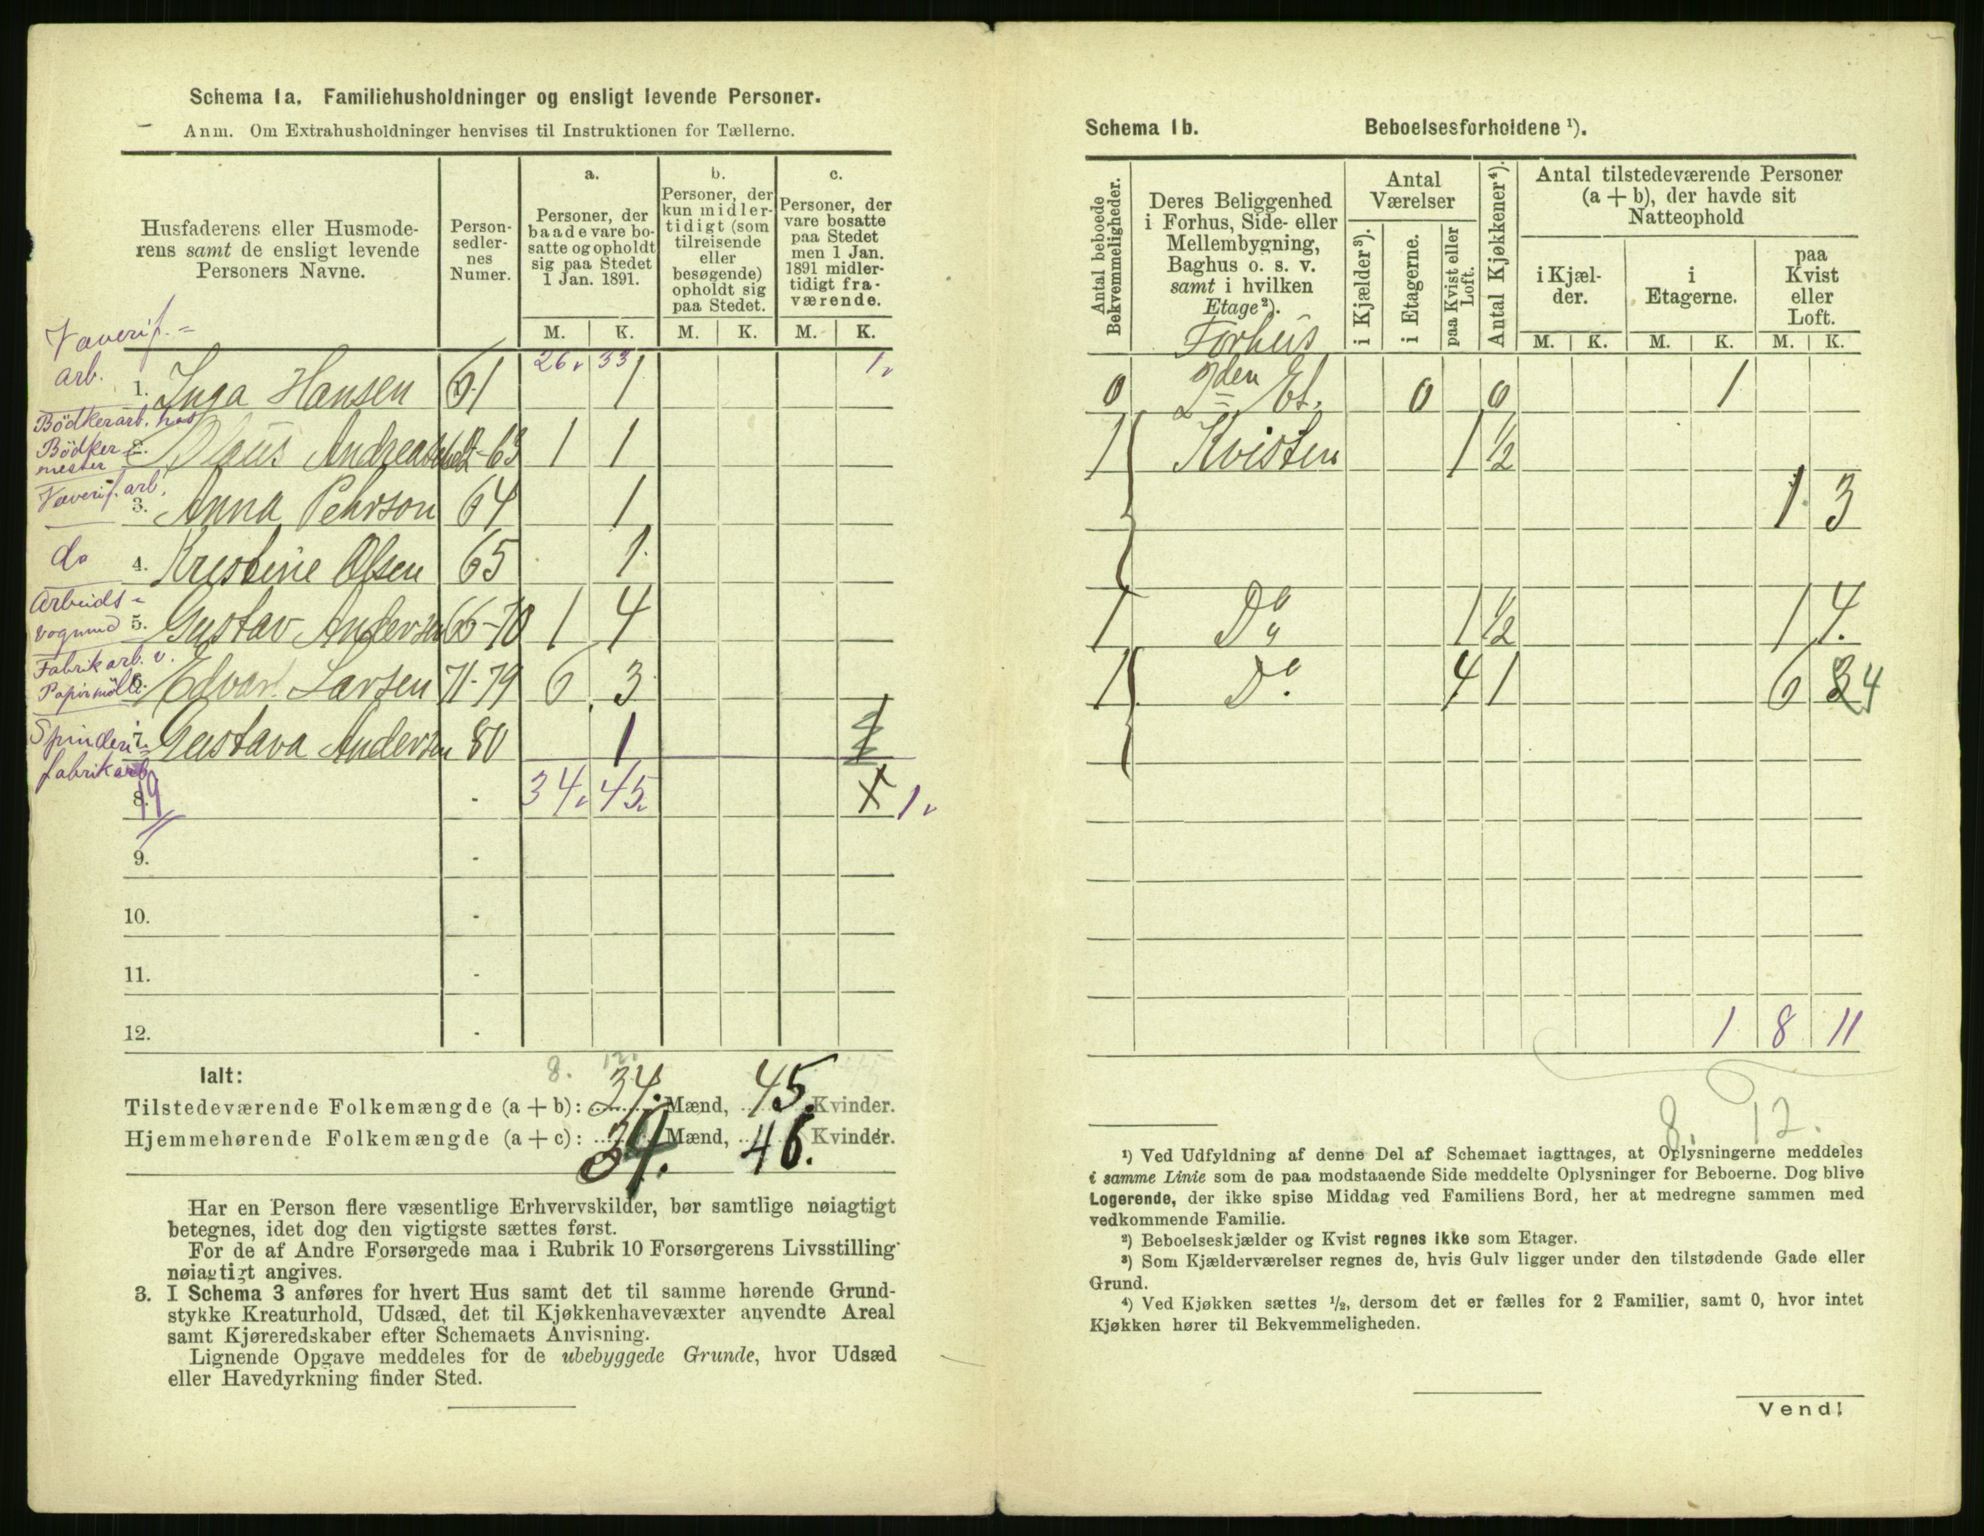 Schema 1a. Familiehusholdninger og ensligt levende Personer.
Anm. Om Extrahusholdninger henvises til Instruktionen for Tællerne.
Husfaderens eller Husmode-
rens samt de ensligt levende
Personers Navne.
Person-
sedler-
nes
Numer.
a.
Personer, der
baade vare bo-
satte og opholdt
sig paa Stedet
1 Jan. 1891.
b.
Personer, der
kun midler-
tidigt (som
tilreisende
eller
besøgende)
opholdt sig
paa Stedet.
c.
Personer, der
vare bosatte
paa Stedet
men 1 Jan.
1891 midler-
tidigt fra-
værende.
M. K. M. K. M. K.
26 33 1
Væverif.=
arb. 1. Inga Hansen 61 1
Bödkerarb. hos
Bödker
mester 2. Andreas 62-63 1 1
Væverif. arb. 3. Anna Pehrson 64 1
do 4. Kristine Olsen 65 1
Arbeids-
vognmd 5. Gustav Andersen 66-70 1 4
Fabrikarb. v.
Papirmölle 6. Edvart Larsen 71-79 6 3
Spinderi=
fabrikarb 7. Gustava Andersen 80 1
8. 19 - 34 45 1
9. -
10. -
11. -
12. -
8. 12.
Ialt:
Tilstedeværende Folkemængde (a + b): 34. Mænd, 45. Kvinder.
Hjemmehørende Folkemængde (a + c): 34. Mænd, 46. Kvinder.
Har en Person flere væsentlige Erhvervskilder, bør samtlige nøiagtigt
betegnes, idet dog den vigtigste sættes først.
For de af Andre Forsørgede maa i Rubrik 10 Forsørgerens Livsstilling
nøiagtigt angives.
3. I Schema 3 anføres for hvert Hus samt det til samme hørende Grund-
stykke Kreaturhold, Udsæd, det til Kjøkkenhavevæxter anvendte Areal
samt Kjøreredskaber efter Schemaets Anvisning.
Lignende Opgave meddeles for de ubebyggede Grunde, hvor Udsæd
eller Havedyrkning finder Sted.
Schema 1b. Beboelsesforholdene ¹).
Antal beboede
Bekvemmeligheder.
Deres Beliggenhed
i Forhus, Side- eller
Mellembygning,
Baghus o. s. v.
samt i hvilken
Etage²).
Antal
Værelser
i Kjælder³).
i Etagerne.
paa Kvist eller
Loft.
Antal Kjøkkener⁴).
Antal tilstedeværende Personer
(a + b), der havde sit
Natteophold
i Kjæl-
der.
i
Etagerne.
paa
Kvist
eller
Loft.
M. K. M. K. M. K.
Forhus
0 2den Et. 0 0 1
1 Kvisten 1 ½
1 3
1 Do 1 ½ 1 4.
1 Do. 4 1 6 3 4
1 8 11
8 12.
¹) Ved Udfyldning af denne Del af Schemaet iagttages, at Oplysningerne meddeles
i samme Linie som de paa modstaaende Side meddelte Oplysninger for Beboerne. Dog blive
Logerende, der ikke spise Middag ved Familiens Bord, her at medregne sammen med
vedkommende Familie.
²) Beboelseskjælder og Kvist regnes ikke som Etager.
³) Som Kjælderværelser regnes de, hvis Gulv ligger under den tilstødende Gade eller
Grund.
⁴) Ved Kjøkken sættes ½, dersom det er fælles for 2 Familier, samt 0, hvor intet
Kjøkken hører til Bekvemmeligheden.
Vend!